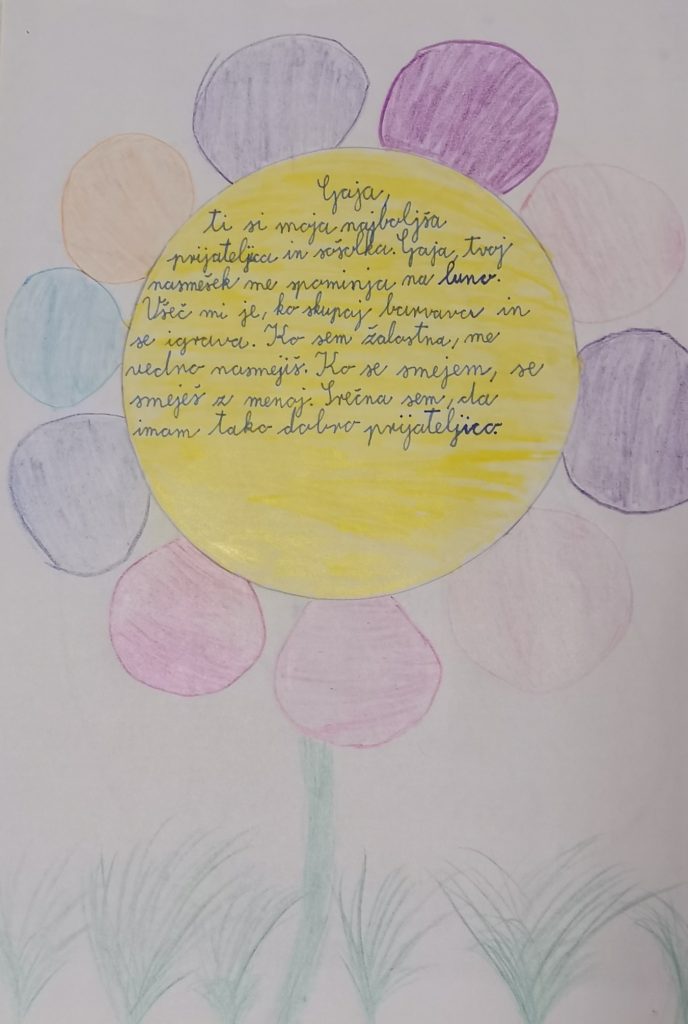 Gaja,
ti si moja najboljša
prijateljica in sošolka. Gaja, tvoj
nasmešek me spominja na luno.
Všeč mi je, ko skupaj barvava in
se igrava. Ko sem žalostna, me
vedno nasmejiš. Ko se smejem, se
smeješ z menoj. Srečna sem, da
imam tako dobro prijateljico.